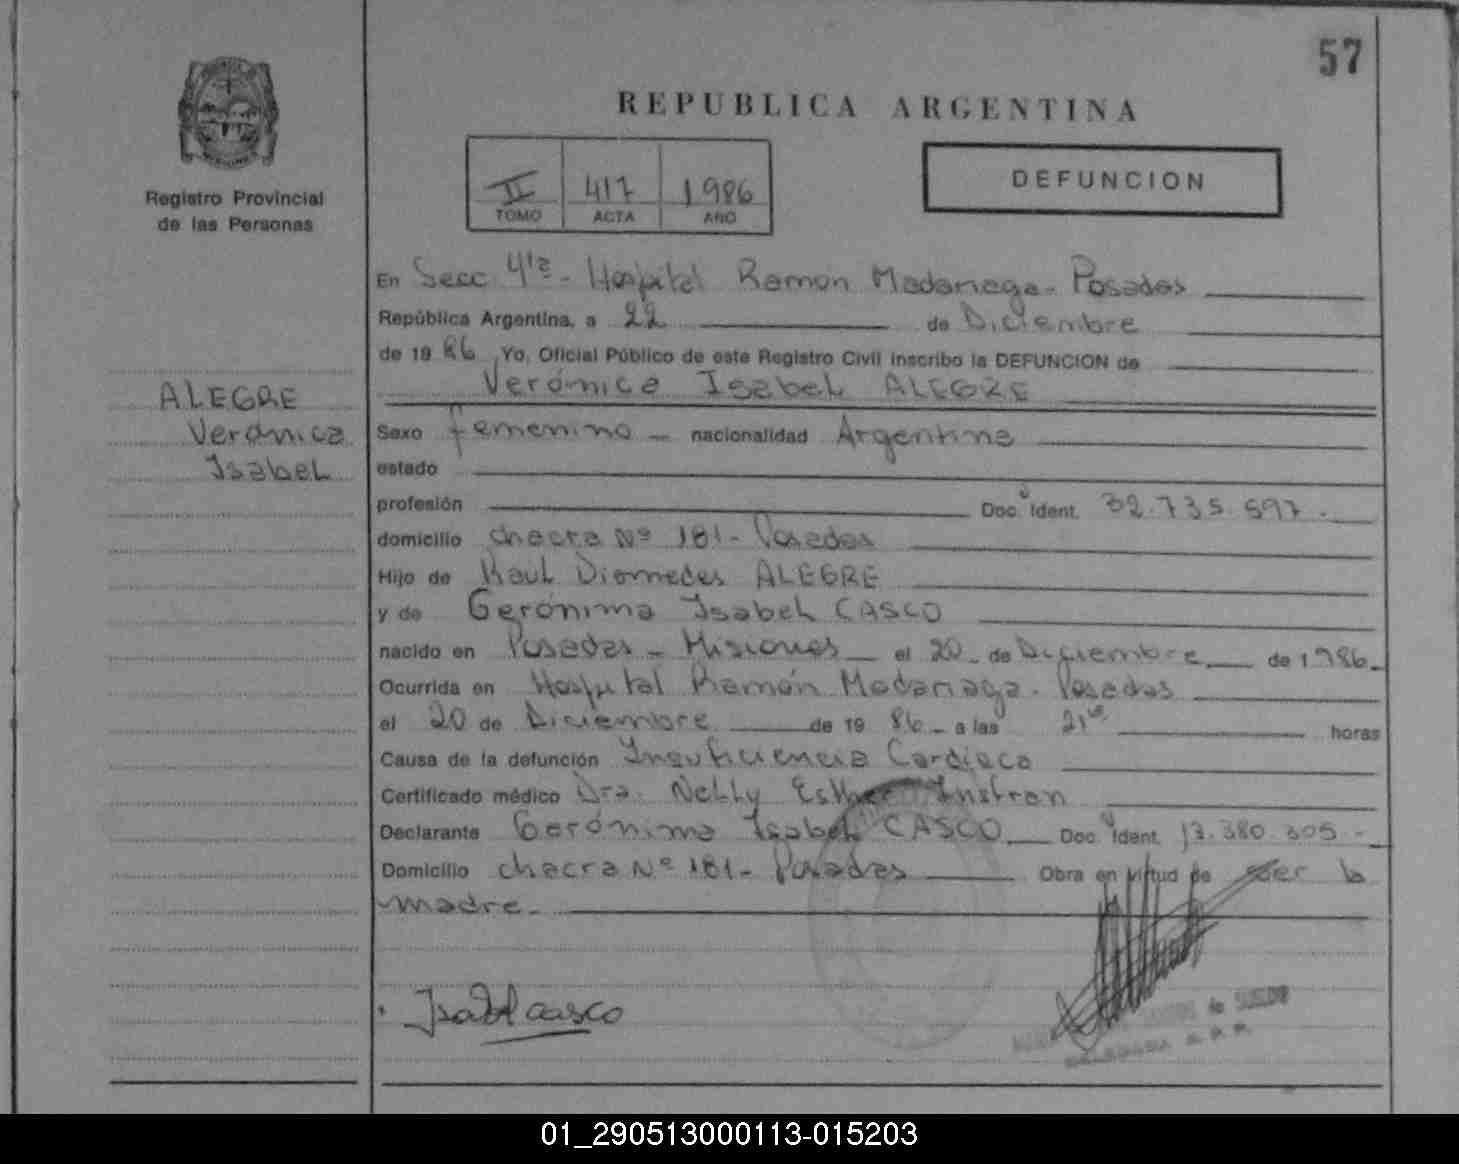 57
REPUBLICA ARGENTINA
Registro Provincial
de las Personas
II 417 1986
TOMO ACTA AÑO
DEFUNCION
En Secc 4ta - Hospital Ramón Madariaga - Posadas
República Argentina, a 22 de Diciembre
de 19 86 Yo, Oficial Público de este Registro Civil inscribo la DEFUNCION de
Verónica Isabel ALEGRE
ALEGRE
Verónica
Isabel
Sexo femenino - nacionalidad Argentina
estado
profesión Doc. Ident. 32.735.597.
domicilio chacra Nº 181 - Posadas
Hijo de Raul Diomedes ALEGRE
y de Gerónima Isabel CASCO
nacido en Posadas - Misiones - el 20 - de Diciembre de 1986.
Ocurrida en Hospital Ramón Madariaga - Posadas
el 20 de Diciembre de 19 86 - a las 21 horas
Causa de la defunción Insuficiencia Cardíaca
Certificado médico Dra. Nelly Esther Instran
Declarante Gerónima Isabel CASCO Doc. Ident. 13.380.305.-
Domicilio chacra Nº 181 - Posadas Obra en virtud de ser la
madre.
Isabel casco
01_290513000113-015203